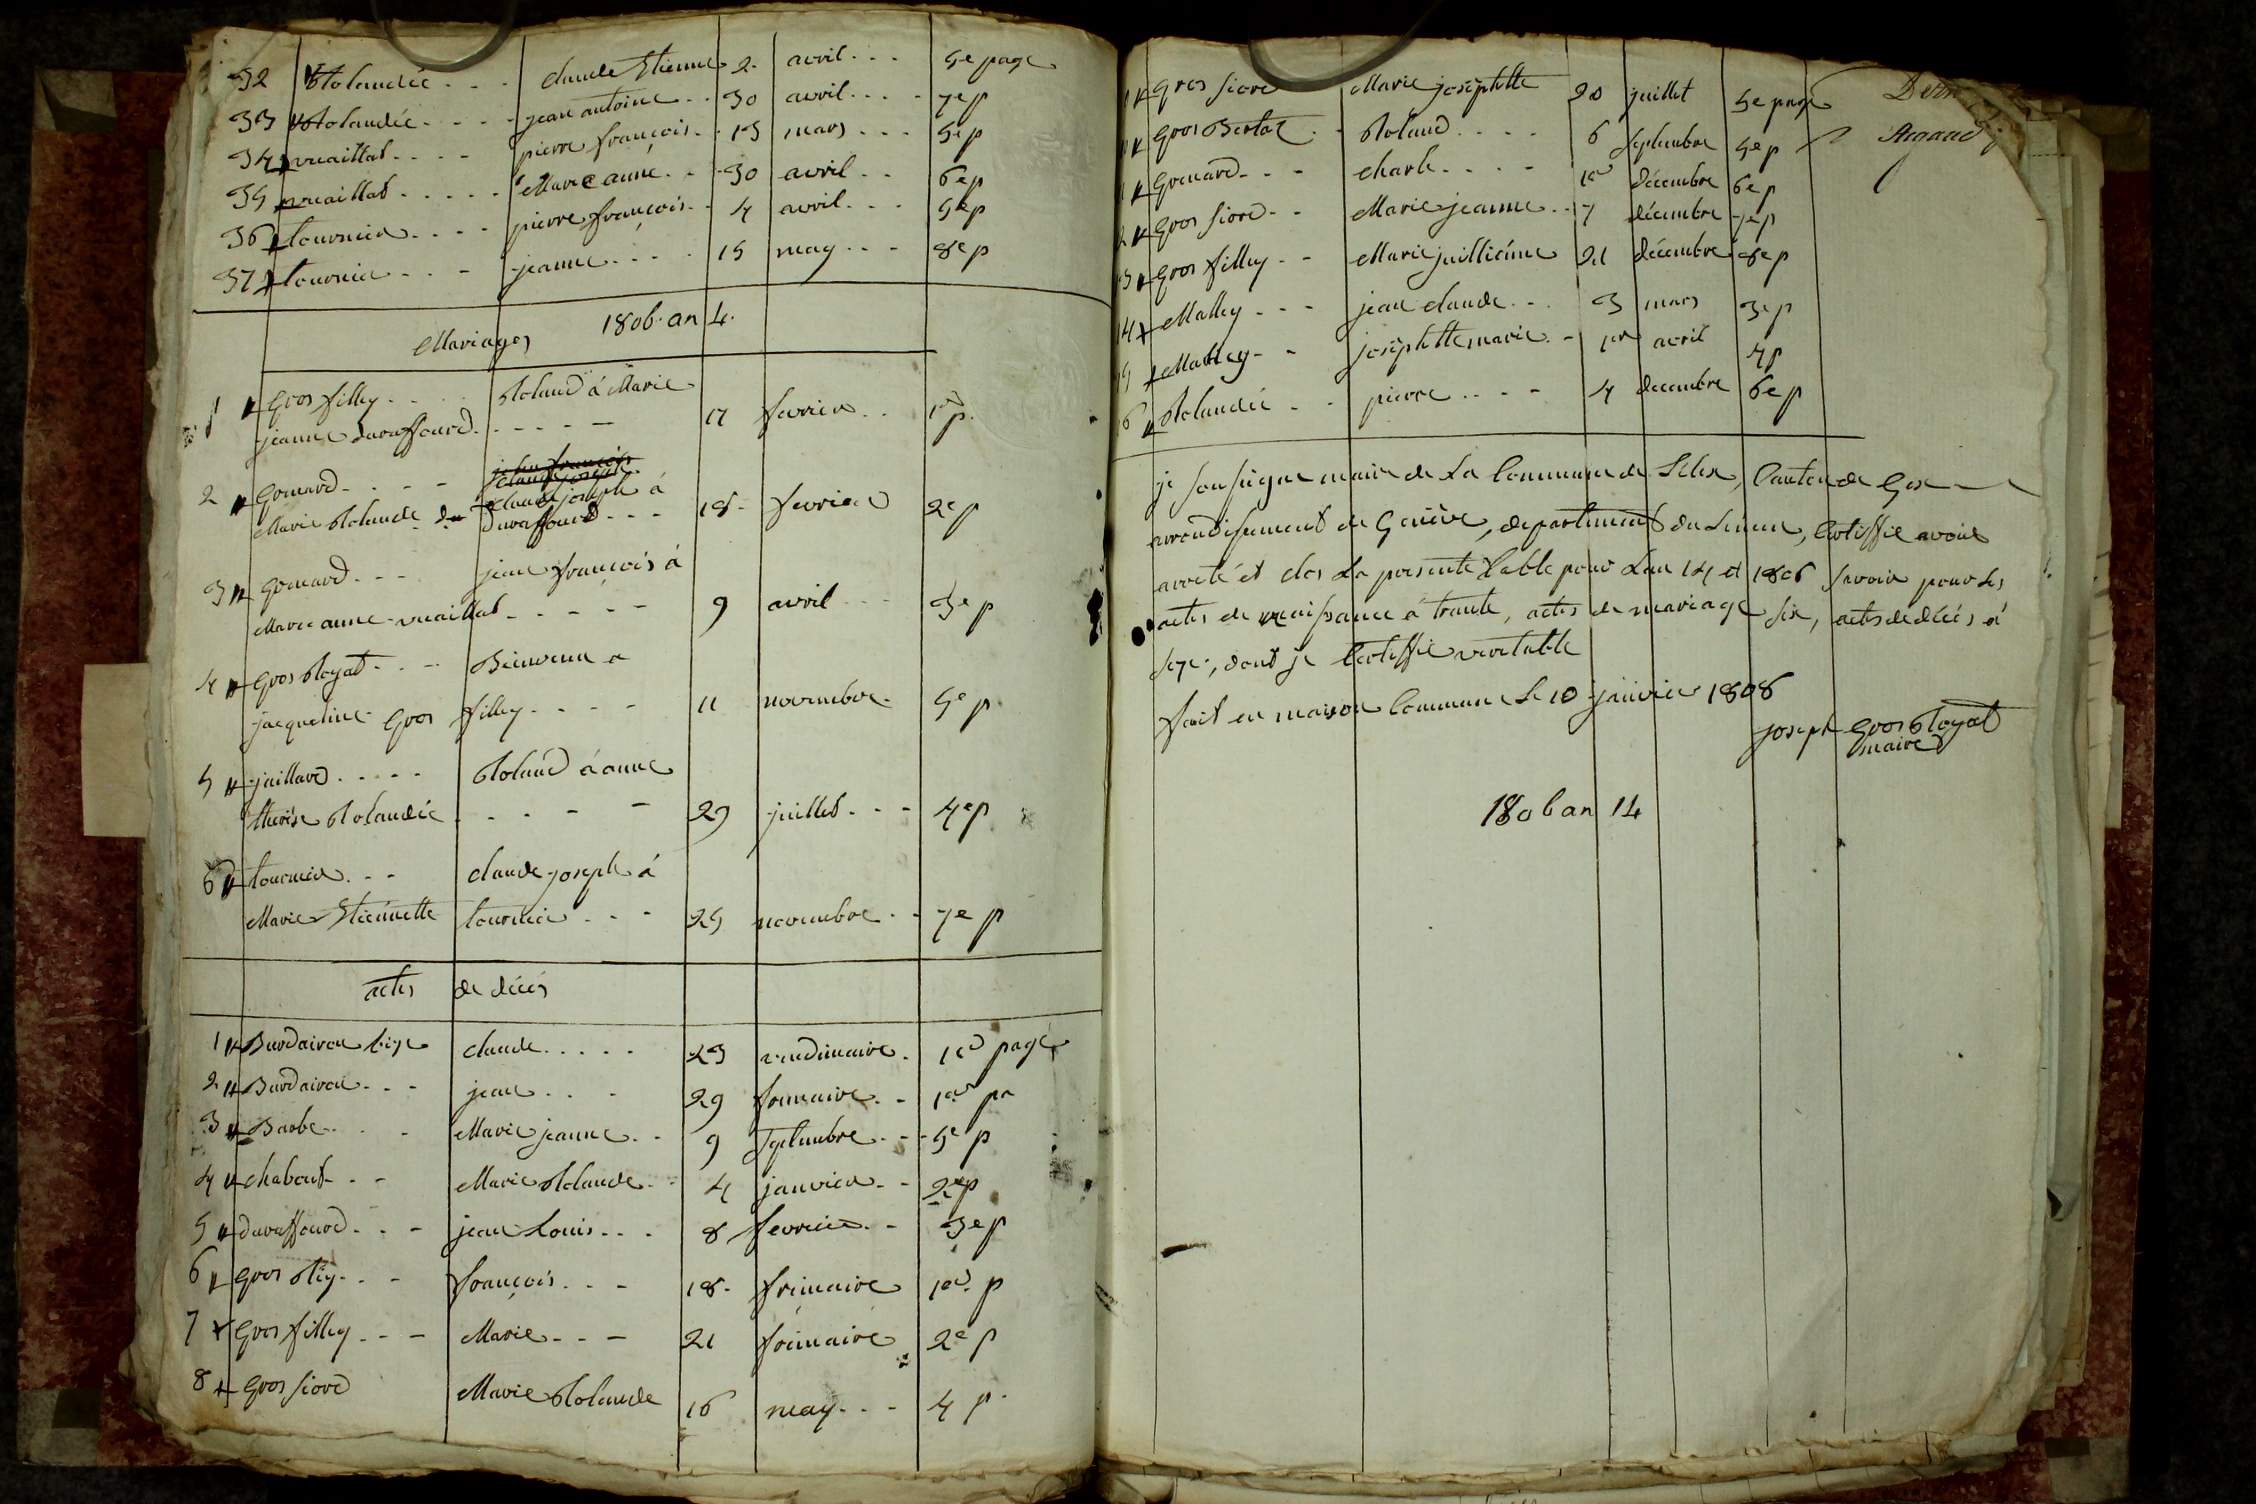 32 Rolandéz claude Etienne 2 avril 5e page
33 Rolandéz jean antoine 30 avril 7e p
34 vuaillat pierre françois 13 mars 5e p
35 vuaillat Marie anne 30 avril 6e p
36 tournier pierre françois 4 avril 5e p
37 tournier jeanne 15 may 8e p
Mariages 1806 an 14.
1 Gros filley Roland á Marie
jeanne duraffourd 17 fevrier 1er p.
2 Gomard claude joseph á
Marie Rolande du duraffourd 18 fevrier 2e p
3 Gomard jean françois á
Marie anne vuaillat 9 avril 3e p
4 Gros Royat Bienvenu a
jacqueline Gros filley 11 novembre 5e p
5 juillard Roland á anne
therèse Rolandéz 29 juillet 4e p
6 tournier claude joseph á
Marie Etiennette tournier 25 novembre 7e p
actes de décés
1 Burdairon claude 23 vendimaire 1er page
2 Burdairon jean 29 frimaire 1er pa
3 Barbe Marie jeanne 9 septembre 5e p
4 chabout Marie Rolande 4 janvier 2e p
5 duraffourd jean Louis 8 fevrier 3e p
6 Gros françois 18 frimaire 1er p
7 Gros filley Marie 21 frimaire 2e p
8 Gros fiord Marie Rolande 16 may 4 p
Gros fiord Marie josephtte 20 juillet 5e page
Gros Berlat Roland 6 septembre 5e p Argand
Gomard charle 1er décembre 6e p
2 Gros fiord Marie jeanne 7 décembre 7e p
13 Gros filley Marie juillienne 21 décembre 8e p
14 Malley jean claude 3 mars 3e p
15 Malley josephtte marie 1er avril 4 p
16 Rolandéz pierre 4 decembre 6e p
je soussigne maire de La Commune de Lelex, Canton de Gex
arrondissement de Genève, departement du Leman, Certiffie avoir
arreté et clos La presente table pour Lan 14 et 1806 savoir pour les
actes de naissance á trante, actes de mariage six, actes de décés á
seze, dont je Certiffie veritable
fait en maison Commune Le 10 janvier 1808
joseph Gros Royat
maire
1806 an 14